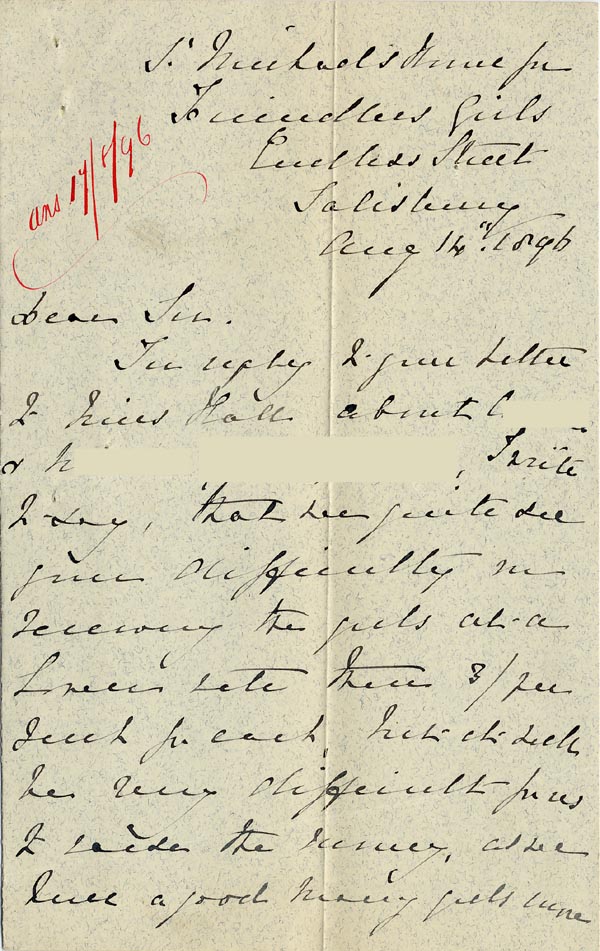 St Michael's Home for
Friendless Girls
Endless Street
Salisbury
Aug 14th 1896
ans 17/8/96
Dear Sir.
In reply to your letter
to Miss Hall about
&
, I write
to say, that we quite see
your difficulty in
receiving the girls at a
lower rate than 3/ per
week for each, but it will
be very difficult for us
to raise the money, as we
have a good many girls